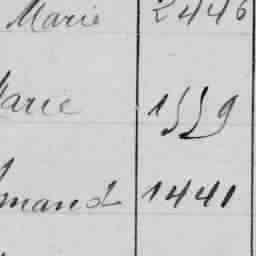 Marie 2446
Marie 1559
mand 1441